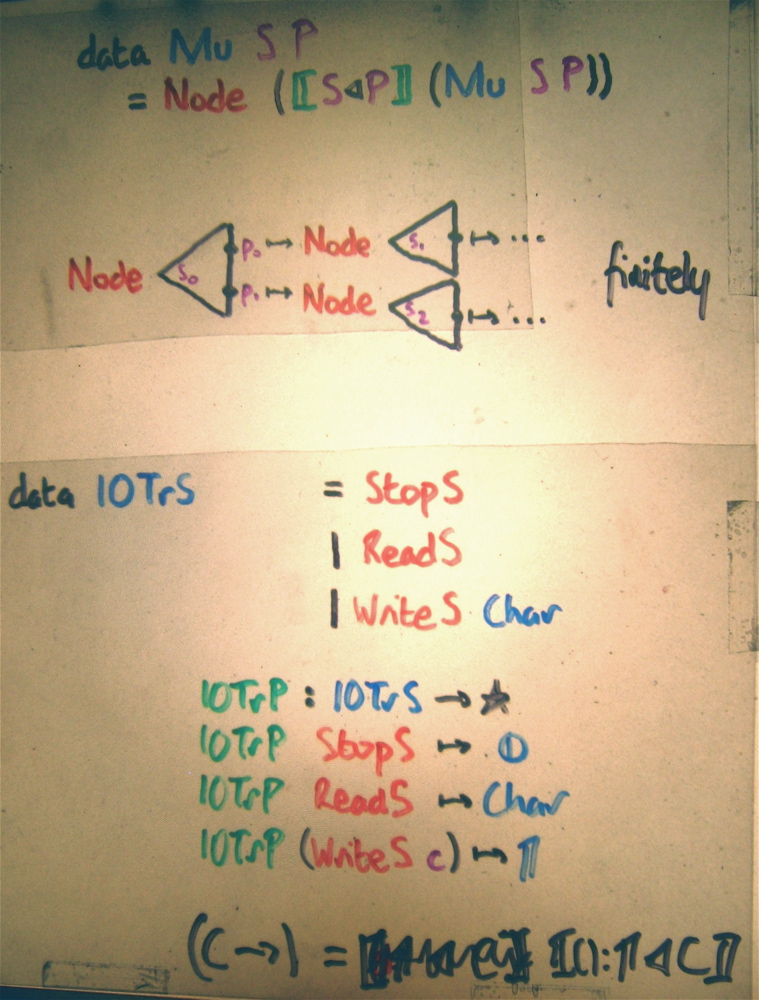 data Mu S P
= Node (⟦S◁P⟧ (Mu S P))
Node s₀ p₀ ↦ Node s₁ ↦ ...
p₁ ↦ Node s₂ ↦ ...
finitely
data IOTrS = StopS
| ReadS
| WriteS Char
IOTrP : IOTrS → ★
IOTrP StopS ↦ 𝟘
IOTrP ReadS ↦ Char
IOTrP (WriteS c) ↦ 𝟙
(C →) = ⟦():𝟙 ◁ C⟧